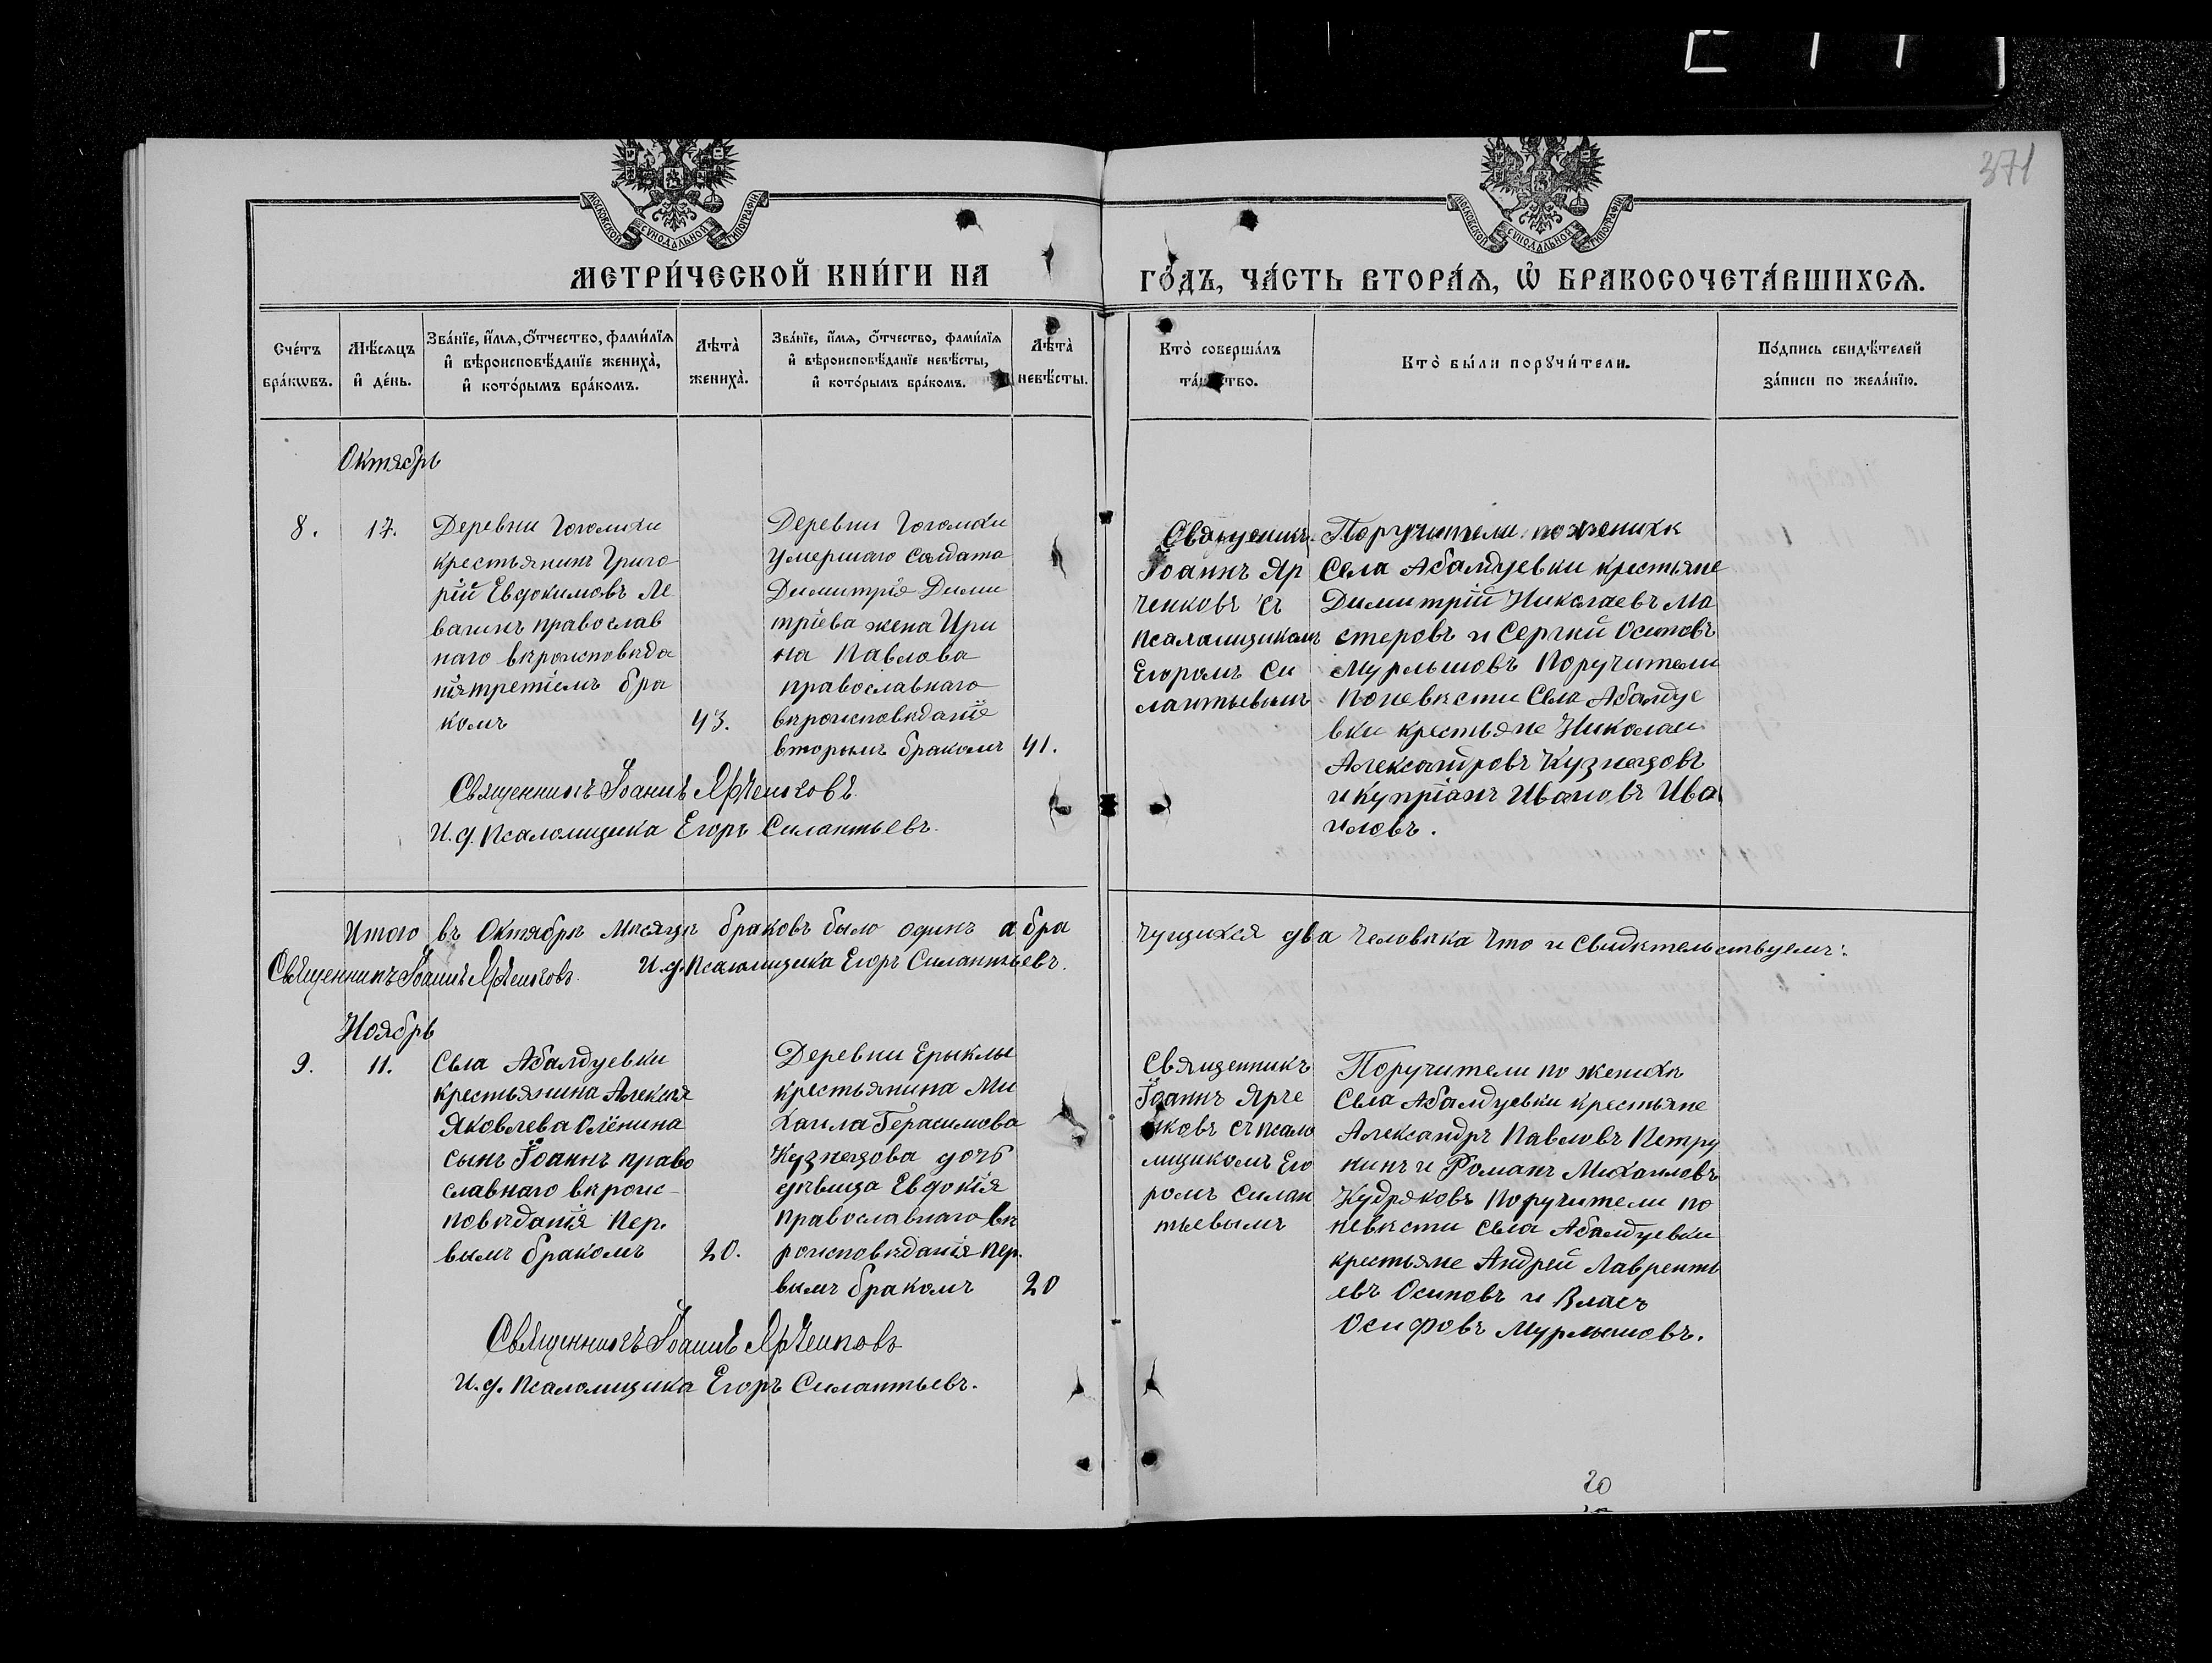 371
МОСКОВСКОЙ СУНОДАЛЬНОЙ ТИПОГРАФІИ
МОСКОВСКОЙ СУНОДАЛЬНОЙ ТИПОГРАФІИ
МЕТРИ́ЧЕСКОЙ КНИ́ГИ НА ГО́ДЪ, ЧА́СТЬ ВТОРА́Ѧ, Ѽ БРАКОСОЧЕТА́ВШИХСѦ.
Сче́тъ
бра́кѡвъ.
Мѣ́сѧцъ
и҆ де́нь.
Зва́нїе, и҆́мѧ, о҆́тчество, фами́лїѧ
и҆ вѣроисповѣ́данїе жениха̀,
и҆ кото́рымъ бра́комъ.
Лѣта̀
жениха̀.
Зва́нїе, и҆́мѧ, о҆́тчество, фами́лїѧ
и҆ вѣроисповѣ́данїе невѣ́сты,
и҆ кото́рымъ бра́комъ.
Лѣта̀
невѣ́сты.
Кто̀ соверша́лъ
та́инство.
Кто̀ бы́ли порꙋчи́тели.
По́дпись свидѣ́телей
за́писи по жела́нїю.
Октябрь
8.
17.
Деревни Гоголихи
крестьянинъ Григо
рій Евдокимовъ Ле
вагинъ православ
наго вѣроисповѣда
нія третіемъ бра
комъ
43.
Деревни Гоголихи
умершаго солдата
Димитрія Дими
тріева жена Ири
на Павлова
православнаго
вѣроисповѣданія
вторымъ бракомъ
41.
Священникъ
Іоаннъ Яр
ченковъ съ
псаломщикомъ
Егоромъ Си
лантьевымъ
Поручители: по женихѣ
Села Абалдуевки крестьяне
Димитрій Николаевъ Ма
стеровъ и Сергѣй Осиповъ
Мурлышовъ Поручители
по невѣсти Села Абалдуе
вки крестьяне Николай
Александровъ Кузнецовъ
и Купріанъ Ивановъ Ива
шловъ.
Священникъ Іоаннъ Ярченковъ
И. д. Псаломщика Егоръ Силантьевъ.
Итого въ Октябрѣ Мѣсяцѣ браковъ было одинъ а бра
чущихся два человѣка что и свидѣтельствуемъ:
Священникъ Іоаннъ Ярченковъ. И. д. Псаломщика Егоръ Силантьевъ.
Ноябрь
9.
11.
Села Абалдуевки
крестьянина Алексѣя
Яковлева Олёнина
сынъ Іоаннъ право
славнаго вѣроис-
повѣданія пер.
вымъ бракомъ
20.
Деревни Ерыклы
крестьянина Ми
хаила Герасимова
Кузнецова дочь
дѣвица Евдокія
православнаго вѣ
роисповѣданія пер.
вымъ бракомъ
20
Священникъ
Іоаннъ Ярче
нковъ съ псало
мщикомъ Его
ромъ Силан
тьевымъ
Поручители по женихѣ
Села Абалдуевки крестьяне
Александръ Павловъ Петру
нинъ и Романъ Михаиловъ
Кудряковъ Поручители по
невѣсти Села Абалдуевки
крестьяне Андрей Лавренть
евъ Осиповъ и Власъ
Осифовъ Мурлышовъ.
Священникъ Іоаннъ Ярченковъ
И. д. Псаломщика Егоръ Силантьевъ.
20